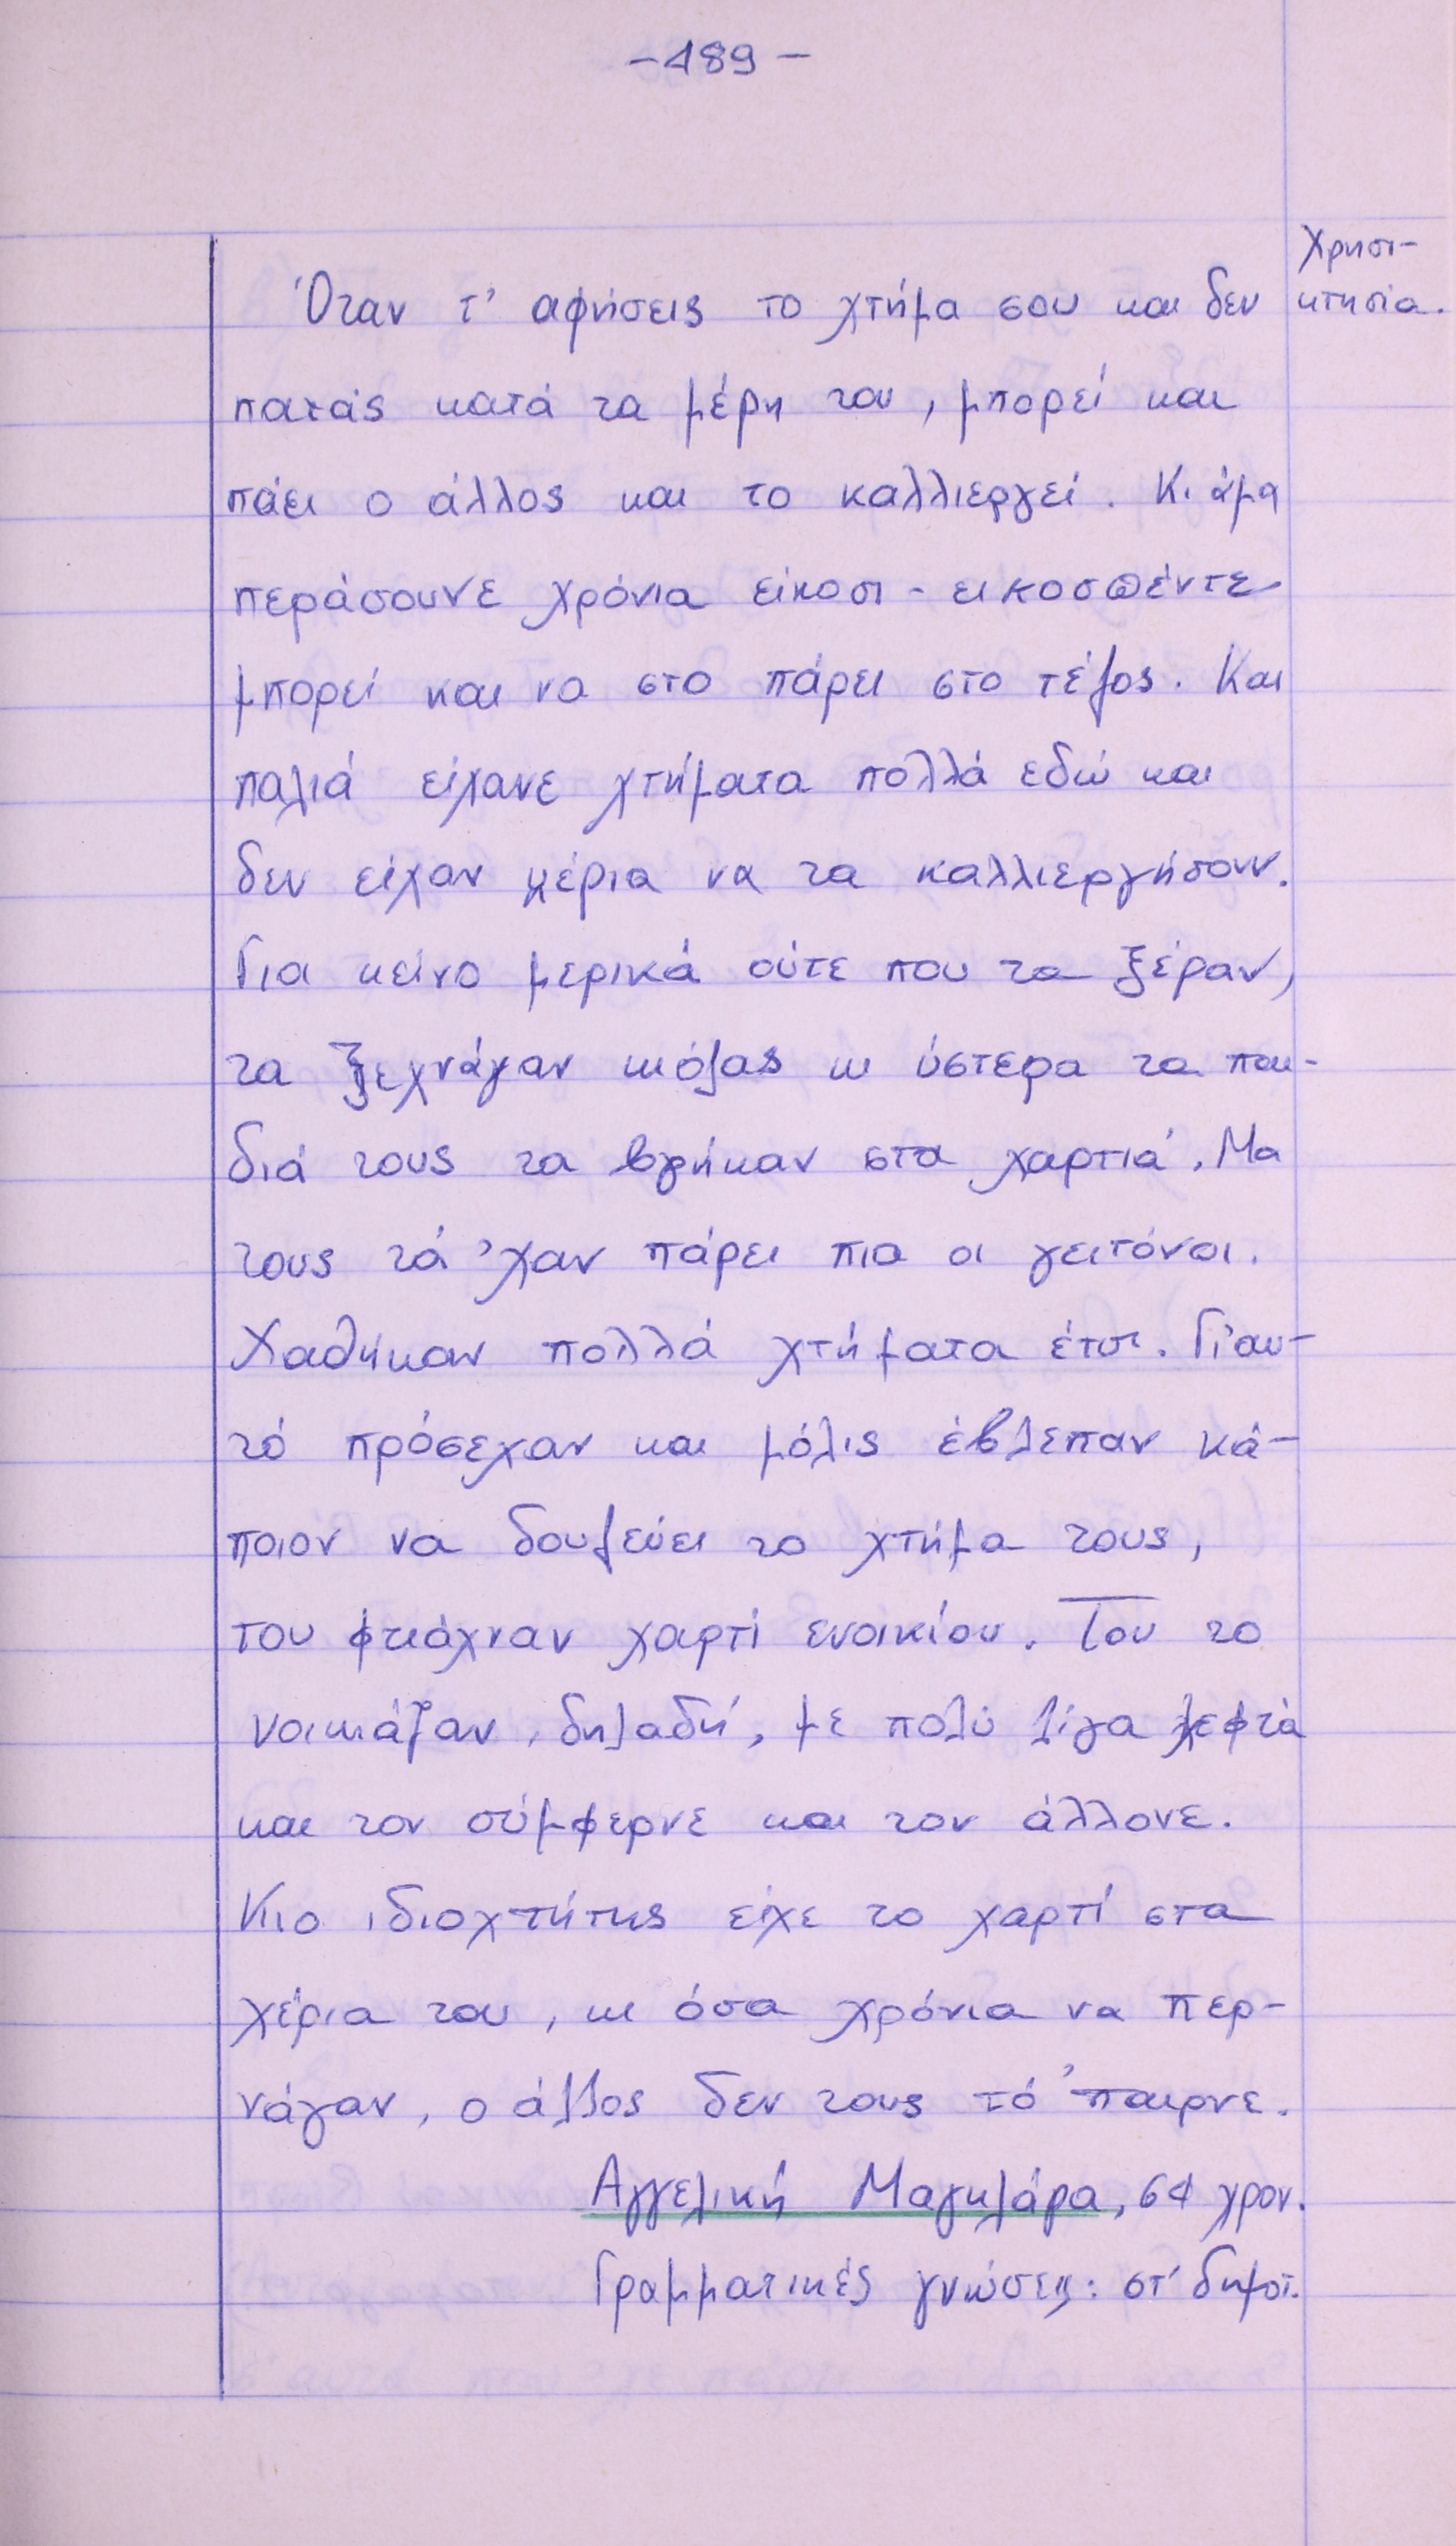 -489-
Χρησι-
κτησία.
Όταν τ' αφήσεις το χτήμα σου και δεν
πατάς κατά τα μέρη του, μπορεί και
πάει ο άλλος και το καλλιεργεί. Κι άμα
περάσουνε χρόνια είκοσι - εικοσπέντε
μπορεί και να στο πάρει στο τέλος. Και
παλιά είχανε χτήματα πολλά εδώ και
δεν είχαν χέρια να τα καλλιεργήσουν.
Για κείνο μερικά ούτε που τα ξέραν,
τα ξεχνάγαν κιόλας κι ύστερα τα παι-
διά τους τα βρήκαν στα χαρτιά. Μα
τους τά 'χαν πάρει πια οι γειτόνοι.
Χαθήκαν πολλά χτήματα έτσι. Γι'αυ-
τό πρόσεχαν και μόλις έβλεπαν κά-
ποιον να δουλεύει το χτήμα τους,
του φτιάχναν χαρτί ενοικίου. Του το
νοικιάζαν, δηλαδή, με πολύ λίγα λεφτά
και τον σύμφερνε και τον άλλονε.
Κι ο ιδιοχτήτης είχε το χαρτί στα
χέρια του, κι όσα χρόνια να περ-
νάγαν, ο άλλος δεν τους τό 'παιρνε.
Αγγελική Μαγκλάρα, 64 χρον.
Γραμματικές γνώσεις: στ' δημοτ.